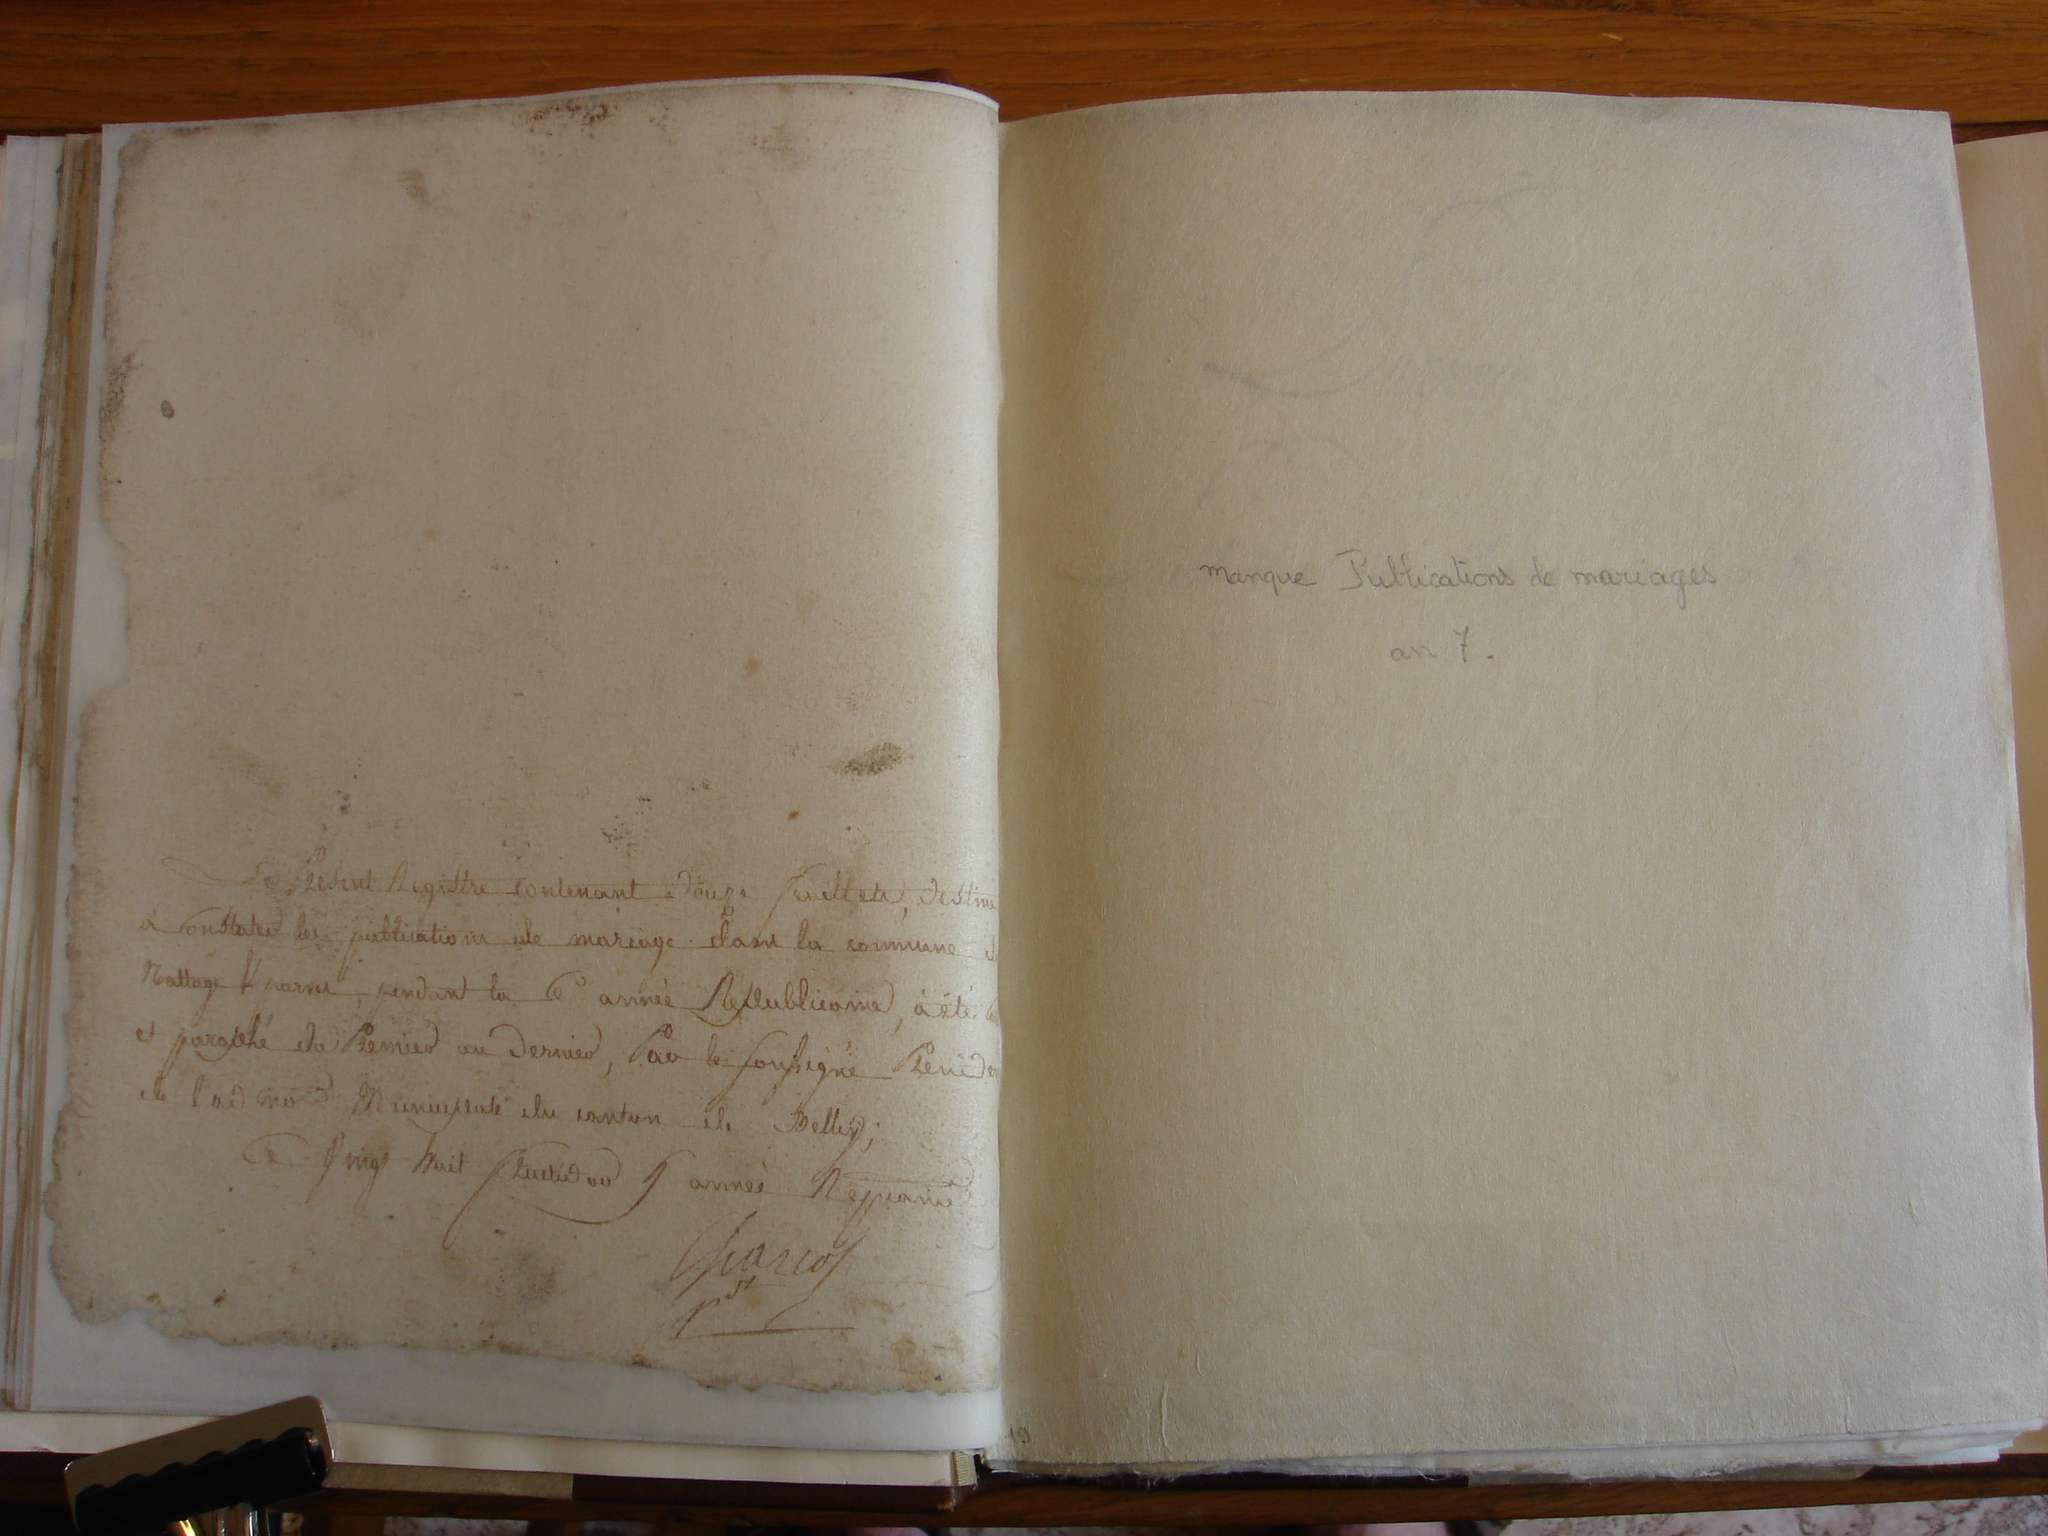 Le Présent Registre contenant Douze feuillets, destiné
à Constater les publications de mariage dans la commune de
Nattage & parves, pendant la 6e année Republicaine, a été
et paraphé du Premier au Dernier, Par le Soussigné Présiden
de l'ad mon Municipale du canton de Belley;
Ce Vingt huit fructidor 5 année Repcaine
Parcos
pdt
manque Publications de mariages
an 7.
19